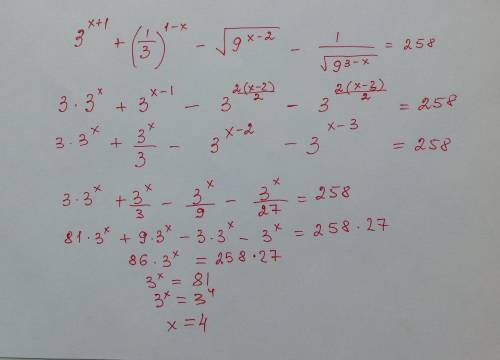 3^{x+1} + (1/3)^{1-x} - √(9^{x-2}) - 1/√(9^{3-x}) = 258
3·3^x + 3^{x-1} - 3^{2(x-2)/2} - 3^{2(x-3)/2} = 258
3·3^x + 3^x/3 - 3^{x-2} - 3^{x-3} = 258
3·3^x + 3^x/3 - 3^x/9 - 3^x/27 = 258
81·3^x + 9·3^x - 3·3^x - 3^x = 258·27
86·3^x = 258·27
3^x = 81
3^x = 3^4
x = 4